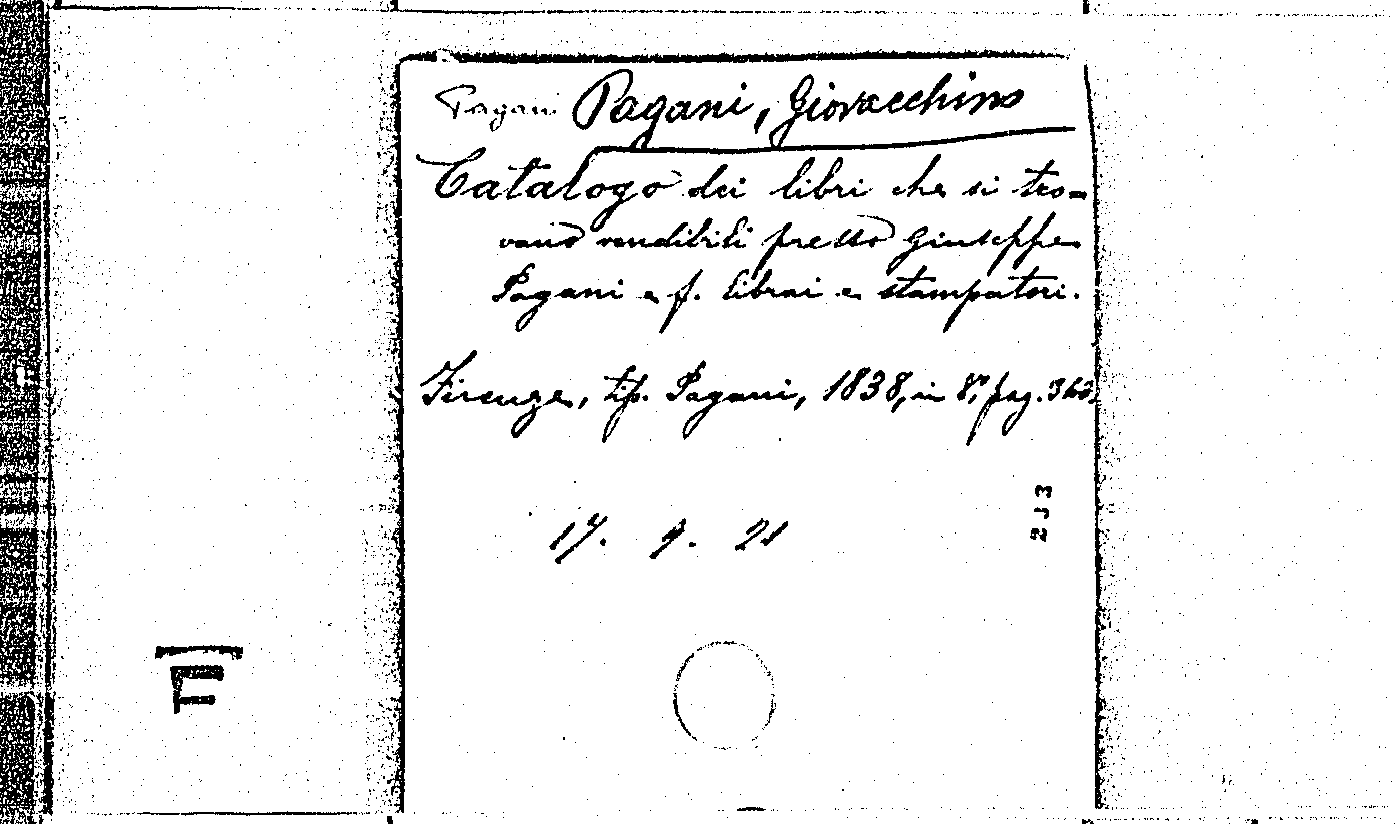 Pagani Pagani, Giovacchino
Catalogo dei libri che si tro=
vano vendibili presso Giuseppe
Pagani e f. librai e stampatori.
Firenze, tip. Pagani, 1838, in 8°, pag.
17. 9. 21
2J3
F